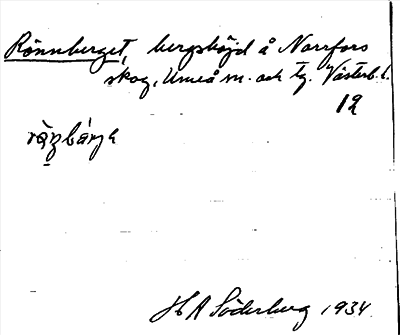 Rönnberget, bergshöjd å Norrfors
skog, Umeå sn. och tg. Västerb. l.
12
H A Söderberg 1934.